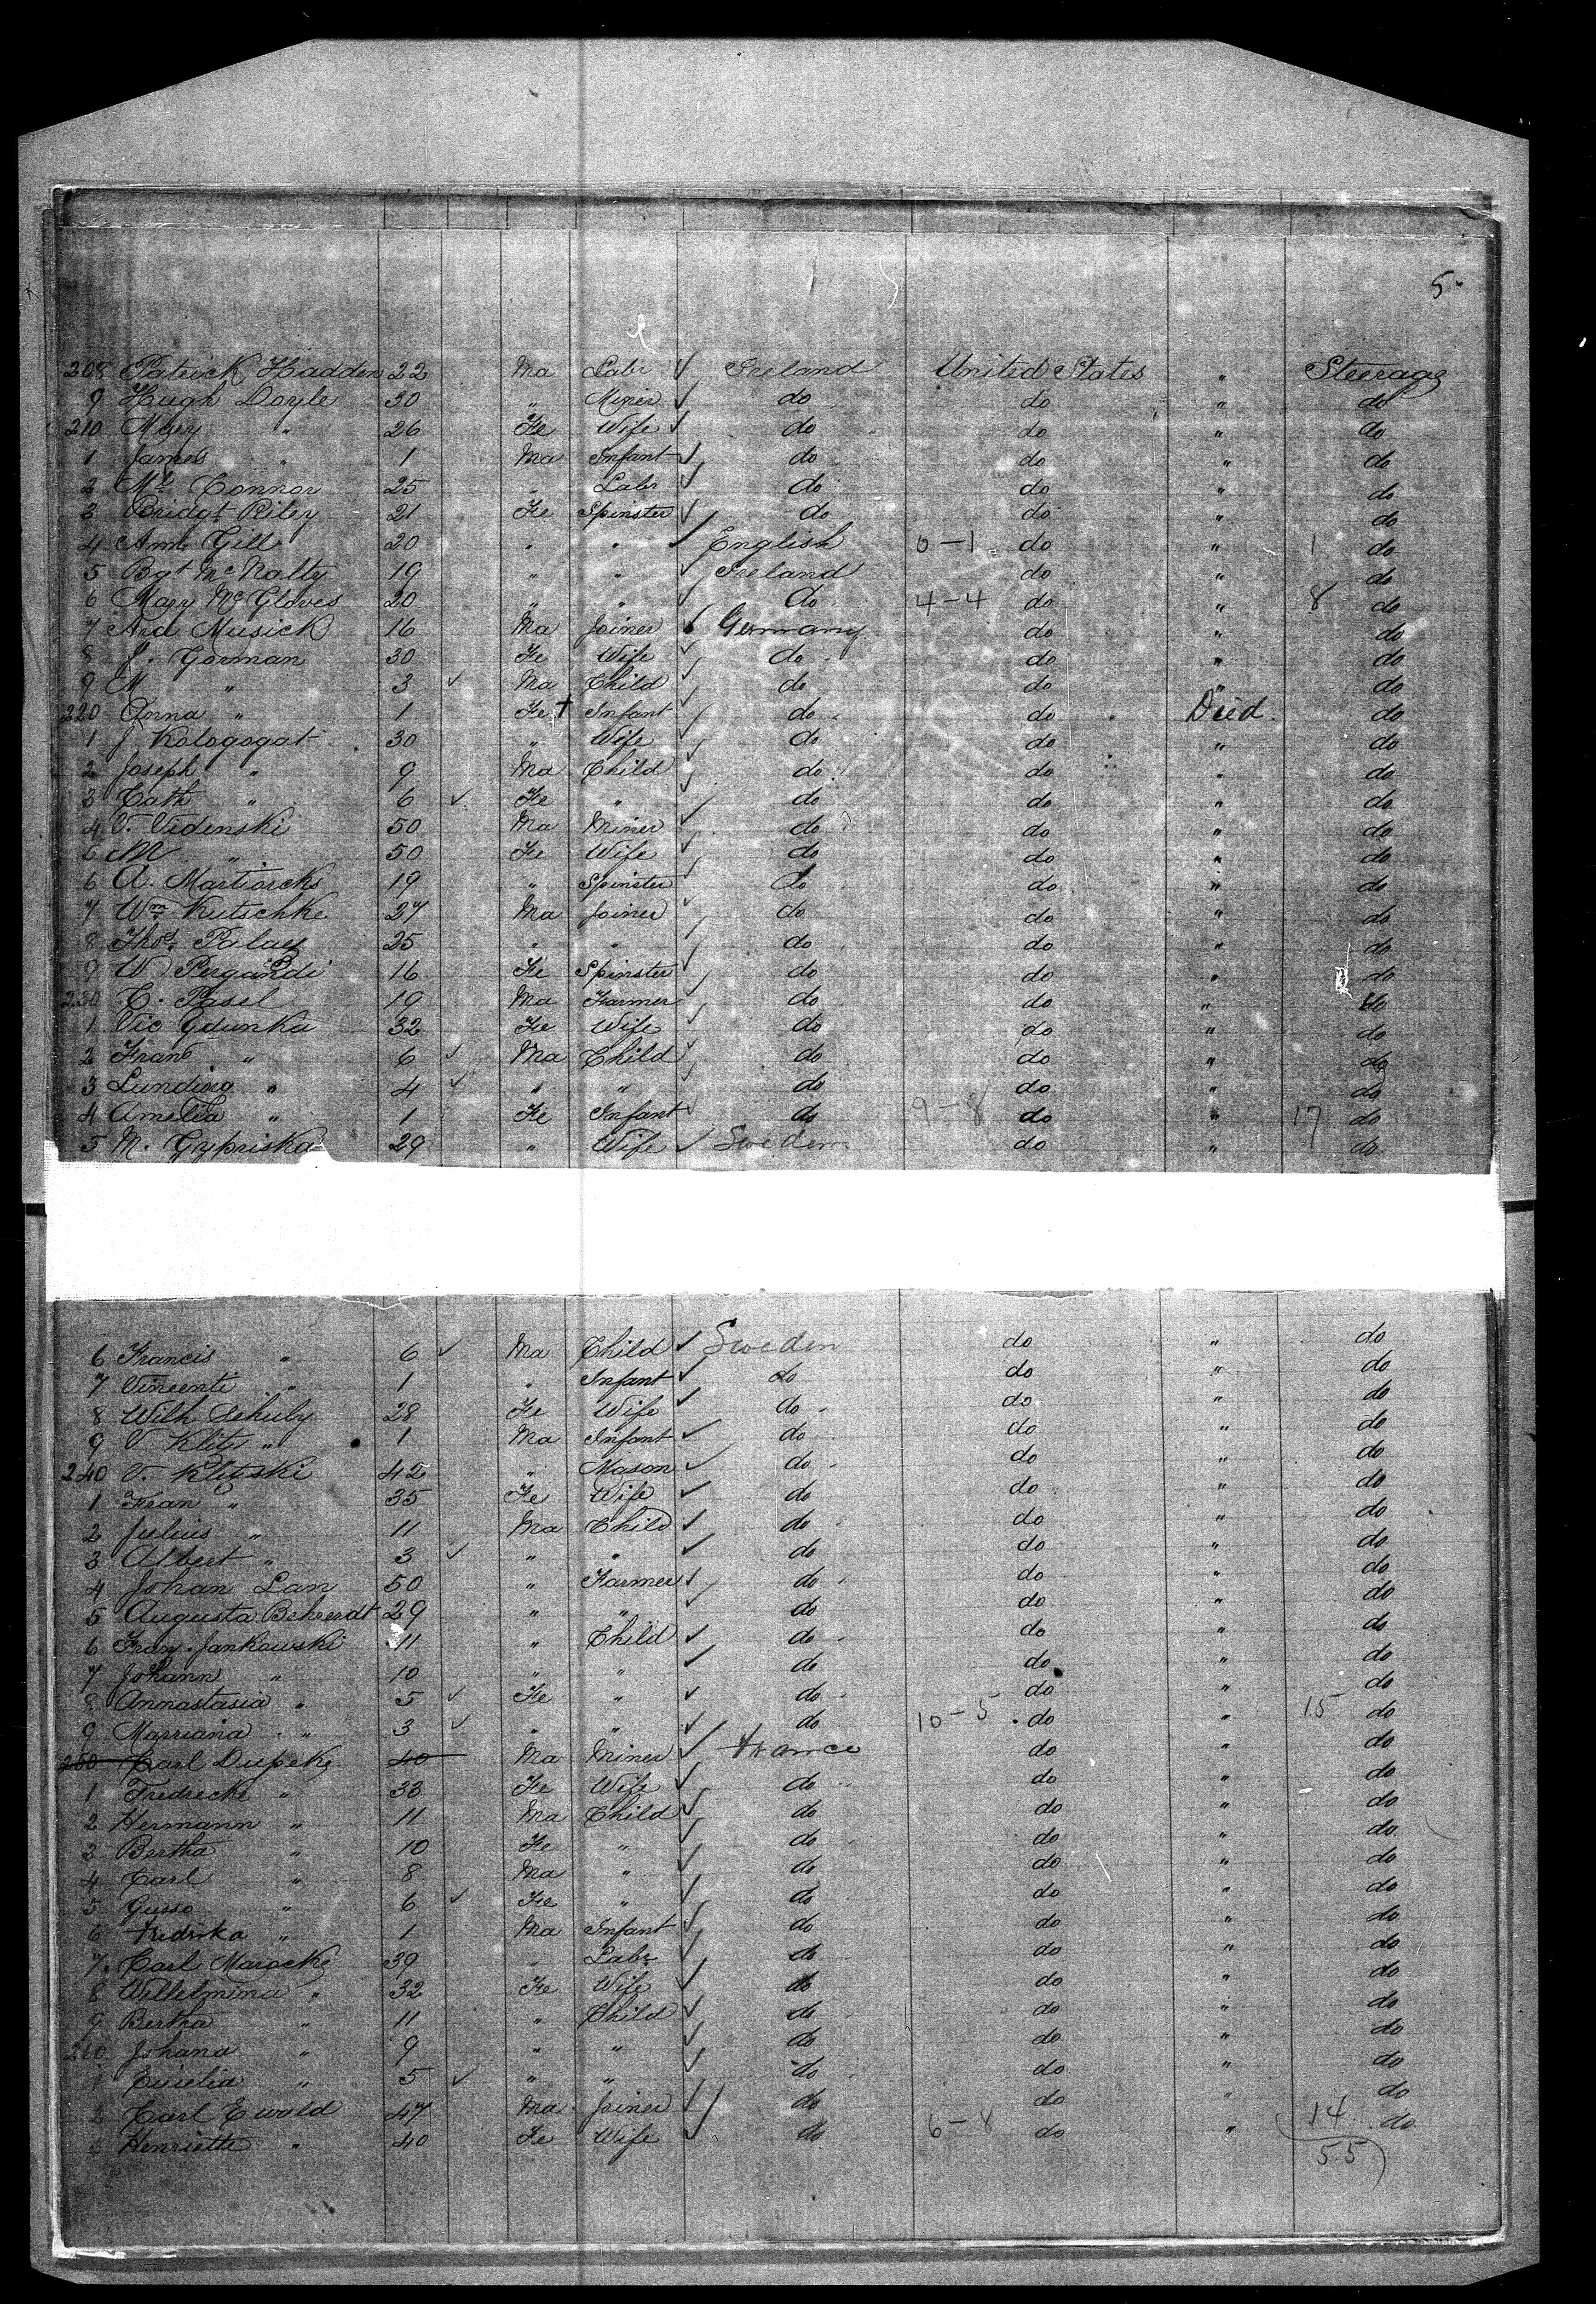 5.
208 Patrick Hadden 22 Ma Labr ✓ Ireland United States " Steerage
9 Hugh Doyle 30 " Miner ✓ do do " do
210 Mary " 26 Fe Wife ✓ do do " do
1 James " 1 Ma Infant ✓ do do " do
2 Ml Connor 25 " Labr ✓ do do " do
3 Bridgt Riley 21 Fe Spinster ✓ do do " do
4 Ann Gill 20 " " ✓ English 0-1 do " 1 do
5 Bgt McNalty 19 " " ✓ Ireland do " do
6 Mary McGloves 20 " " ✓ do 4-4 do " 8 do
7 And Musick 16 Ma Joiner ✓ Germany do " do
8 J. Gorman 30 Fe Wife ✓ do do " do
9 M " 3 ✓ Ma Child ✓ do do " do
220 Anna " 1 Fe † Infant ✓ do do Died do
1 J Kologogat 30 " Wife ✓ do do " do
2 Joseph " 9 Ma Child ✓ do do " do
3 Cath " 6 ✓ Fe " ✓ do do " do
4 V. Vidinski 50 Ma Miner ✓ do do " do
5 M " 50 Fe Wife ✓ do do " do
6 A. Martiorcks 19 " Spinster ✓ do do " do
7 Wm Kutschke 27 Ma Joiner ✓ do do " do
8 Thos. Palaey 25 " " ✓ do do " do
9 W Pergandi 16 Fe Spinster ✓ do do " do
230 C. Pasel 19 Ma Farmer ✓ do do " do
1 Vic Gdunka 32 Fe Wife ✓ do do " do
2 Franc " 6 ✓ Ma Child ✓ do do " do
3 " 4 ✓ " " do do " do
4 Amelia " 1 Fe Infant ✓ do 9-8 do " 17 do
5 M. Grypriska 29 " Wife ✓ Sweden do " do
6 Francis " 6 ✓ Ma Child ✓ Sweden do " do
7 Vincenti " 1 " Infant ✓ do do " do
8 Wilh Schuly 28 Fe Wife ✓ do do " do
9 V Klits " 1 Ma Infant ✓ do do " do
240 V. Klitski 42 " Mason ✓ do do " do
1 Fran " 35 Fe Wife ✓ do do " do
2 Julius " 11 Ma Child ✓ do do " do
3 Albert " 3 ✓ " " ✓ do do " do
4 Johan Lan 50 " Farmer ✓ do do " do
5 Augusta Behrendt 29 " " ✓ do do " do
6 Franz. Jankowski 11 " Child ✓ do do " do
7 Johann " 10 " " ✓ do do " do
8 Annastasia " 5 ✓ Fe " ✓ do do " do
9 Marriana " 3 ✓ " " ✓ do 10-5 do " 15 do
250 Carl Dupeke 40 Ma Miner ✓ France do " do
1 Fredrecke " 33 Fe Wife ✓ do do " do
2 Hermann " 11 Ma Child ✓ do do " do
3 Bertha " 10 Fe " ✓ do do " do
4 Carl " 8 Ma " ✓ do do " do
5 Gusso " 6 ✓ Fe " ✓ do do " do
6 Fredrika " 1 Ma Infant ✓ do do " do
7 Carl Marocke 39 " Labr ✓ do do " do
8 Willelmina " 32 Fe Wife ✓ do do " do
9 Bertha " 11 " Child ✓ do do " do
260 Johana " 9 " " ✓ do do " do
1 " 5 ✓ " " ✓ do do " do
2 Carl Ewald 47 Ma Joiner ✓ do do " do
3 Henriette " 40 Fe Wife ✓ do 6-8 do " 14 do
55